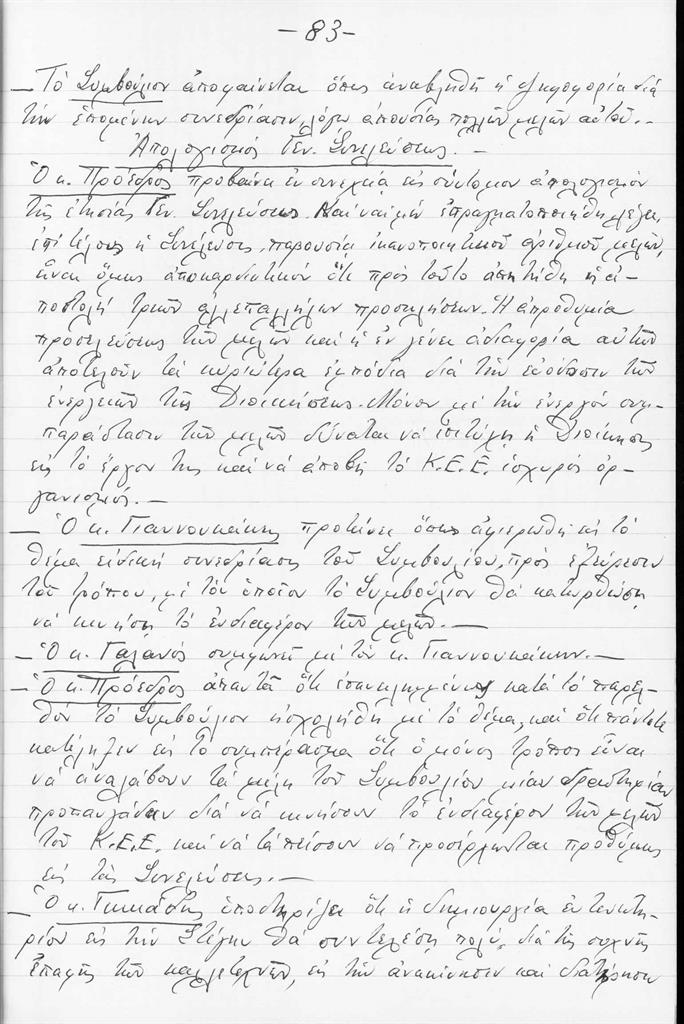 -83-
— Τὸ Συμβούλιον ἀποφαίνεται ὅπως ἀναβληθῇ ἡ ψηφοφορία διὰ
τὴν ἑπομένην συνεδρίασιν, λόγῳ ἀπουσίας πολλῶν μελῶν αὐτοῦ.-
Ἀπολογισμὸς Γεν. Συνελεύσεως.-
Ὁ κ. Πρόεδρος προβαίνει ἐν συνεχείᾳ εἰς σύντομον ἀπολογισμὸν
τῆς ἐτησίας Γεν. Συνελεύσεως. Ναὶ ναὶ μὲν ἐπραγματοποιήθη, λέγει,
ἐπὶ τέλους ἡ Συνέλευσις, παρουσίᾳ ἱκανοποιητικοῦ ἀριθμοῦ μελῶν,
εἶναι ὅμως ἀποκαρδιωτικὸν ὅτι πρὸς τοῦτο ἀπῃτήθη ἡ ἀ-
ποστολὴ τριῶν ἀλλεπαλλήλων προσκλήσεων. Ἡ ἀπροθυμία
προσελεύσεως τῶν μελῶν καὶ ἡ ἐν γένει ἀδιαφορία αὐτῶν
ἀποτελοῦν τὰ κυριώτερα ἐμπόδια διὰ τὴν εὐόδωσιν τῶν
ἐνεργειῶν τῆς Διοικήσεως. Μόνον μὲ τὴν ἐνεργὸν συμ-
παράστασιν τῶν μελῶν δύναται νὰ ἐπιτύχῃ ἡ Διοίκησις
εἰς τὸ ἔργον της καὶ νὰ ἀποβῇ τὸ Κ.Ε.Ε. ἰσχυρὸς ὀρ-
γανισμός.-
— Ὁ κ. Γιαννουκάκης προτείνει ὅπως ἀφιερωθῇ εἰς τὸ
θέμα εἰδικὴ συνεδρίασις τοῦ Συμβουλίου, πρὸς ἐξεύρεσιν
τοῦ τρόπου, μὲ τὸν ὁποῖον τὸ Συμβούλιον θὰ κατορθώσῃ
νὰ κινήσῃ τὸ ἐνδιαφέρον τῶν μελῶν.-
— Ὁ κ. Γαλανὸς συμφωνεῖ μὲ τὸν κ. Γιαννουκάκην.-
— Ὁ κ. Πρόεδρος ἀπαντᾶ ὅτι ἐπανειλημμένως κατὰ τὸ παρελ-
θὸν τὸ Συμβούλιον ἠσχολήθη μὲ τὸ θέμα, καὶ ὅτι πάντοτε
κατέληξεν εἰς τὸ συμπέρασμα ὅτι ὁ μόνος τρόπος εἶναι
νὰ ἀναλάβουν τὰ μέλη τοῦ Συμβουλίου μίαν δραστηρίαν
προπαγάνδαν διὰ νὰ κινήσουν τὸ ἐνδιαφέρον τῶν μελῶν
τοῦ Κ.Ε.Ε. καὶ νὰ τὰ πείσουν νὰ προσέρχωνται προθύμως
εἰς τὰς Συνελεύσεις.-
— Ὁ κ. ὑποστηρίζει ὅτι ἡ δημιουργία ἐντευκτη-
ρίου εἰς τὴν Στέγην θὰ συντελέσῃ πολύ, διὰ τῆς συχνῆς
ἐπαφῆς τῶν καλλιτεχνῶν, εἰς τὴν ἀνακίνησιν καὶ διατήρησιν